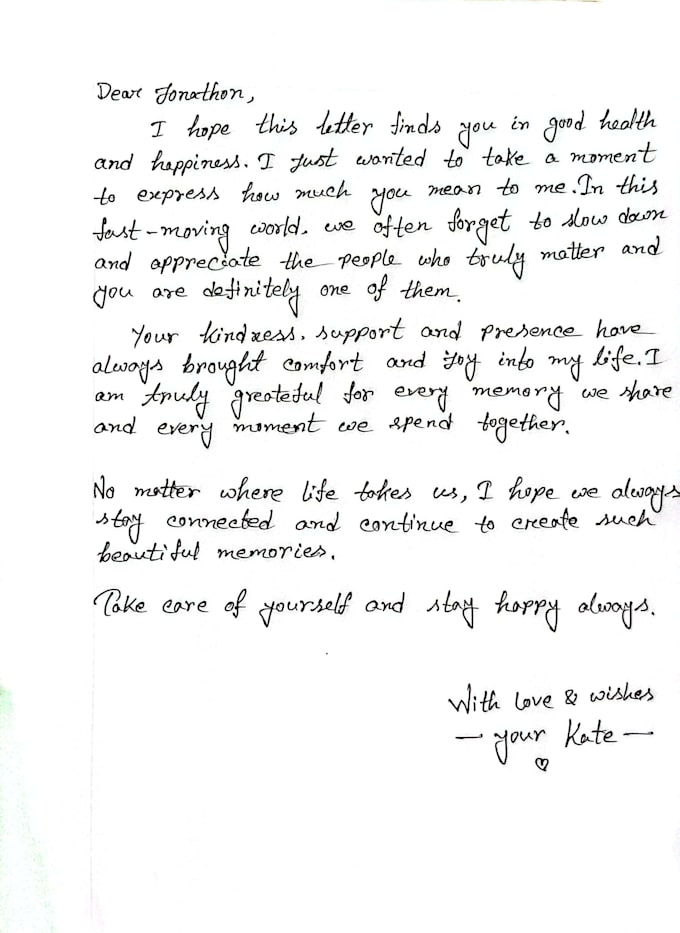 Dear Jonathon,
I hope this letter finds you in good health
and happiness. I just wanted to take a moment
to express how much you mean to me. In this
fast-moving world. we often forget to slow down
and appreciate the people who truly matter and
you are definitely one of them.
Your kindness. support and presence have
always brought comfort and joy into my life. I
am truly greateful for every memory we share
and every moment we spend together.
No matter where life takes us, I hope we always
stay connected and continue to create such
beautiful memories.
Take care of yourself and stay happy always.
With love & wishes
— your Kate —
♡